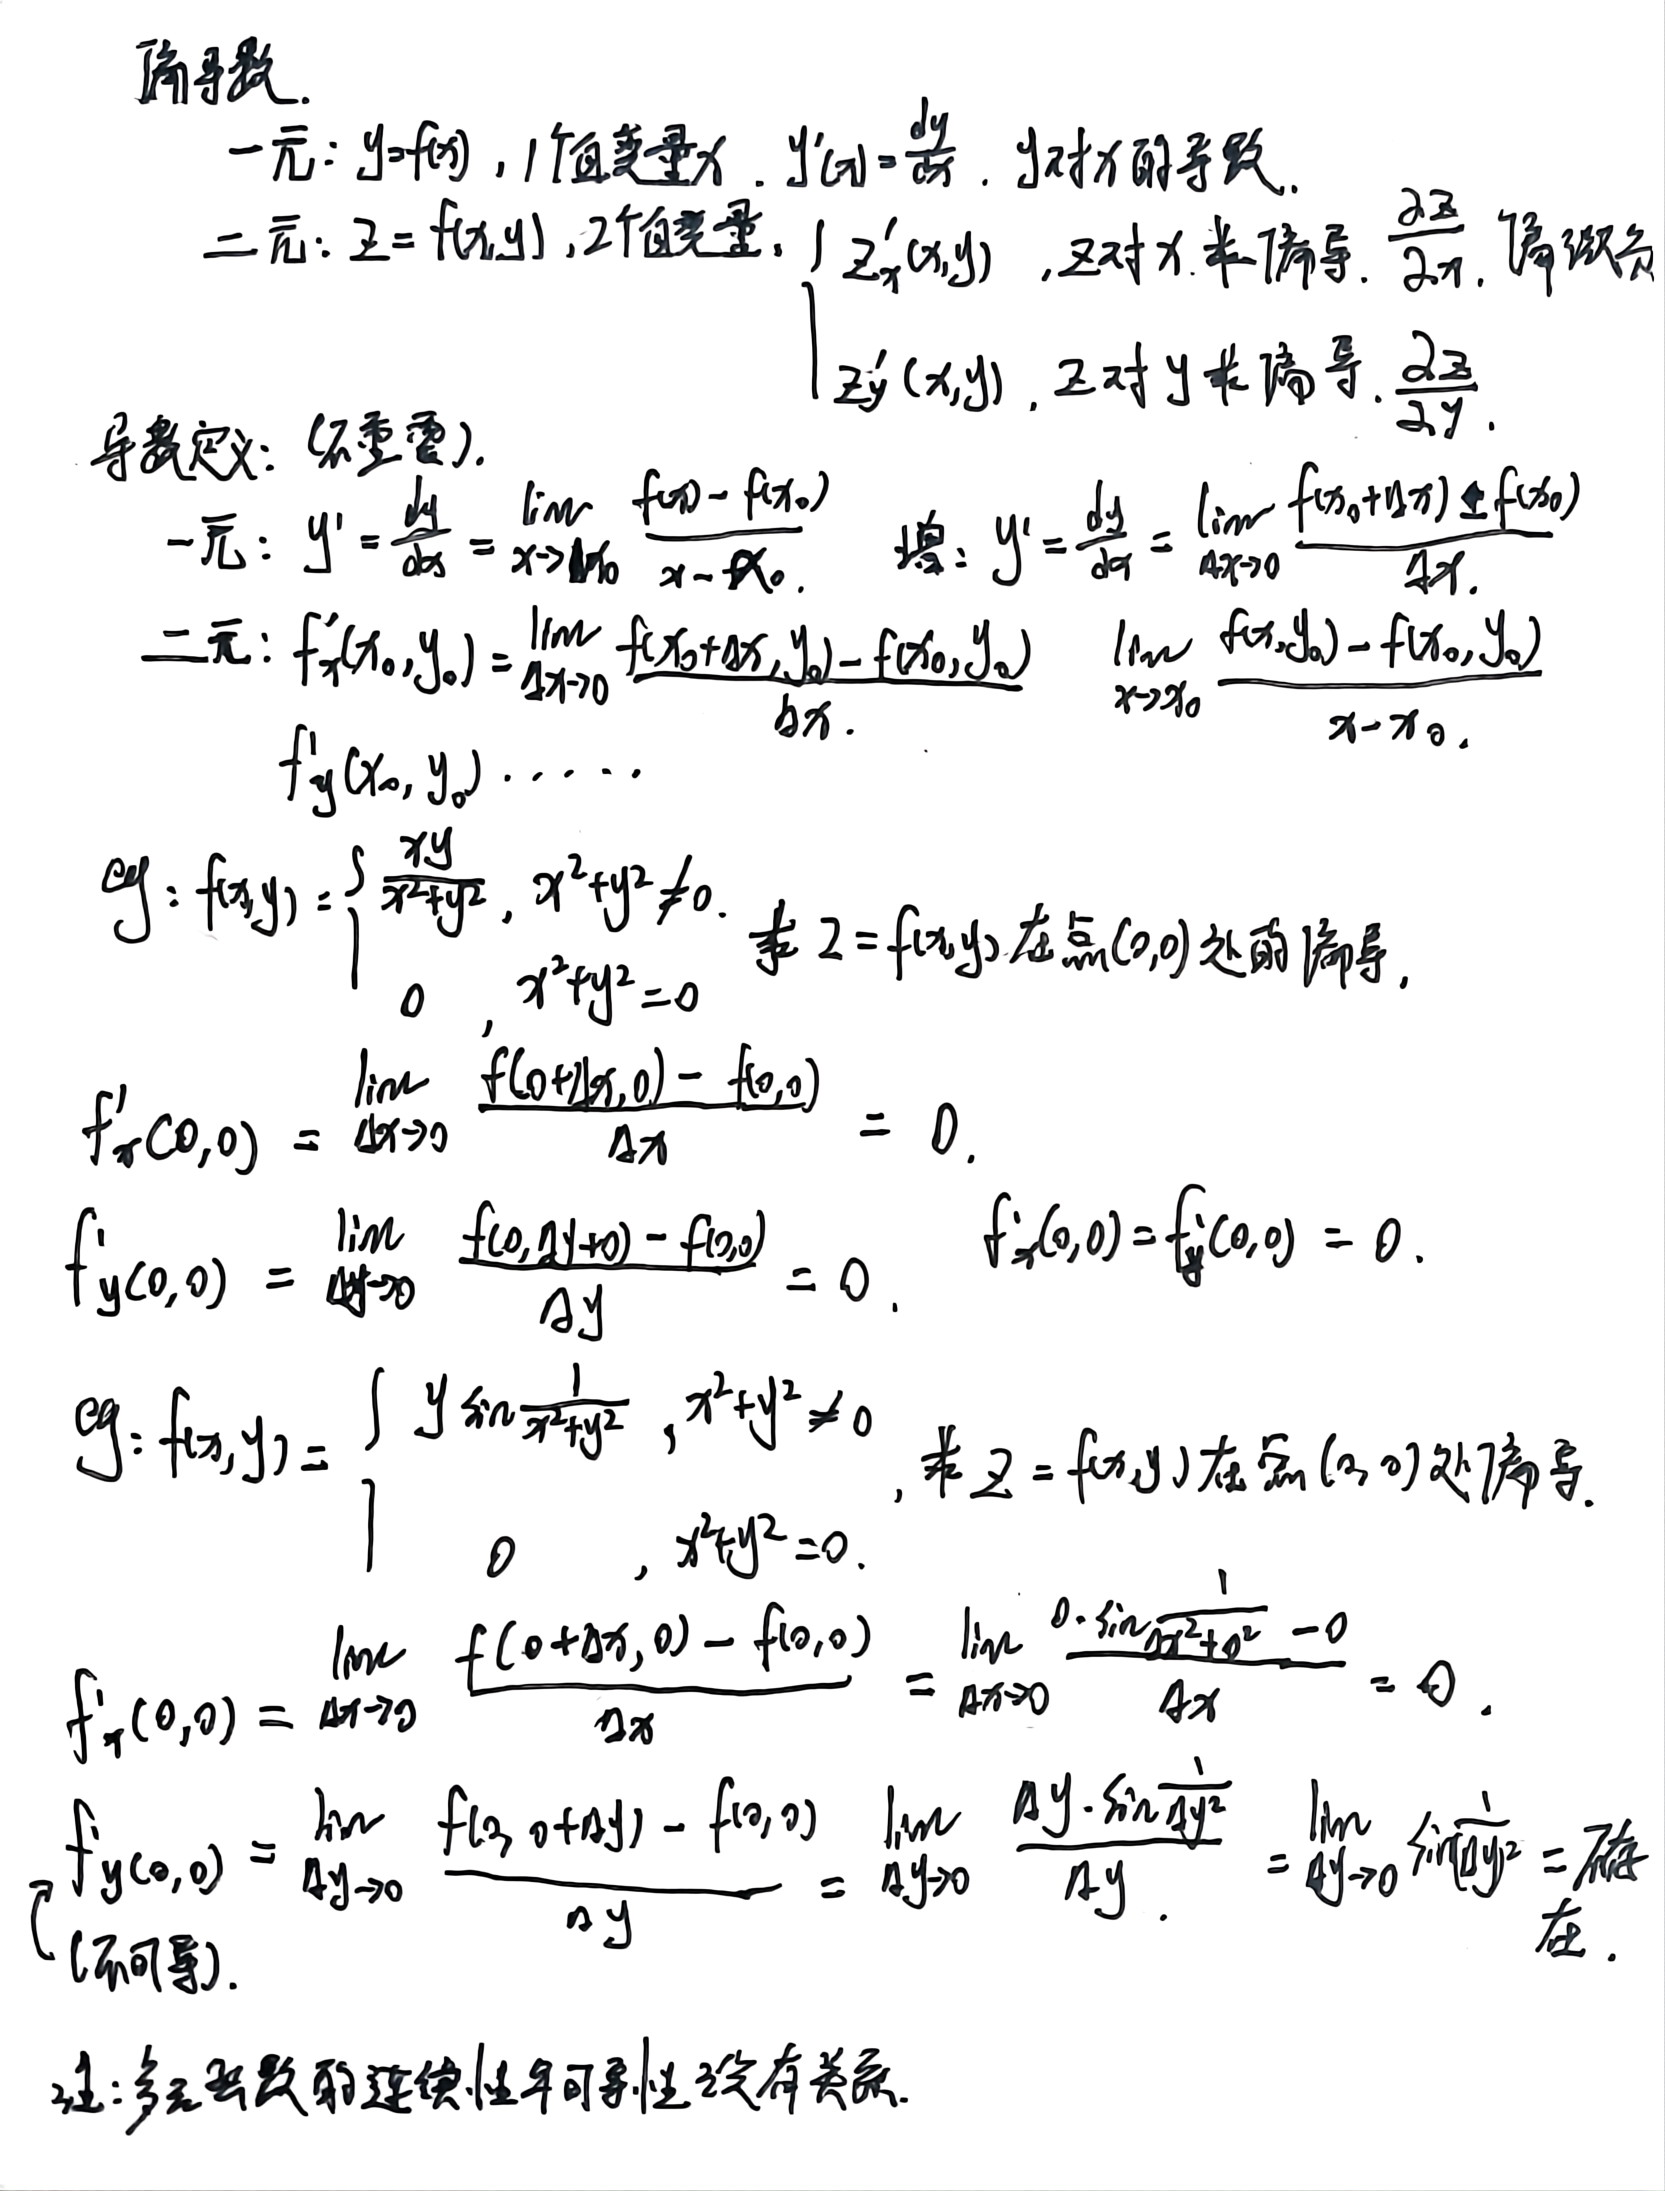 偏导数.
一元: y=f(x), 1个自变量x. y'(x)=dy/dx. y对x的导数.
二元: z=f(x,y), 2个自变量, { z'x(x,y), z对x求偏导. ∂z/∂x. 偏微分
z'y(x,y), z对y求偏导. ∂z/∂y.
导数定义: (不重要).
一元: y' = dy/dx = lim x→x₀ (f(x)-f(x₀))/(x-x₀). 增: y' = dy/dx = lim Δx→0 (f(x₀+Δx)-f(x₀))/Δx.
二元: f'x(x₀,y₀) = lim Δx→0 (f(x₀+Δx,y₀)-f(x₀,y₀))/Δx. lim x→x₀ (f(x,y₀)-f(x₀,y₀))/(x-x₀).
f'y(x₀,y₀)·····
eg: f(x,y) = { xy/(x²+y²), x²+y²≠0. 求z=f(x,y)在点(0,0)处的偏导.
0, x²+y²=0
f'x(0,0) = lim Δx→0 (f(0+Δx,0)-f(0,0))/Δx = 0.
f'y(0,0) = lim Δy→0 (f(0,Δy+0)-f(0,0))/Δy = 0. f'x(0,0)=f'y(0,0)=0.
eg: f(x,y) = { y sin 1/(x²+y²), x²+y²≠0, 求z=f(x,y)在点(0,0)处偏导.
0, x²+y²=0.
f'x(0,0) = lim Δx→0 (f(0+Δx,0)-f(0,0))/Δx = lim Δx→0 (0·sin 1/(Δx²+0²) -0)/Δx = 0.
f'y(0,0) = lim Δy→0 (f(0,0+Δy)-f(0,0))/Δy = lim Δy→0 (Δy·sin 1/Δy²)/Δy. = lim Δy→0 sin 1/(Δy)² = 不存在.
(不可导).
注: 多元函数的连续性与可导性没有关系.